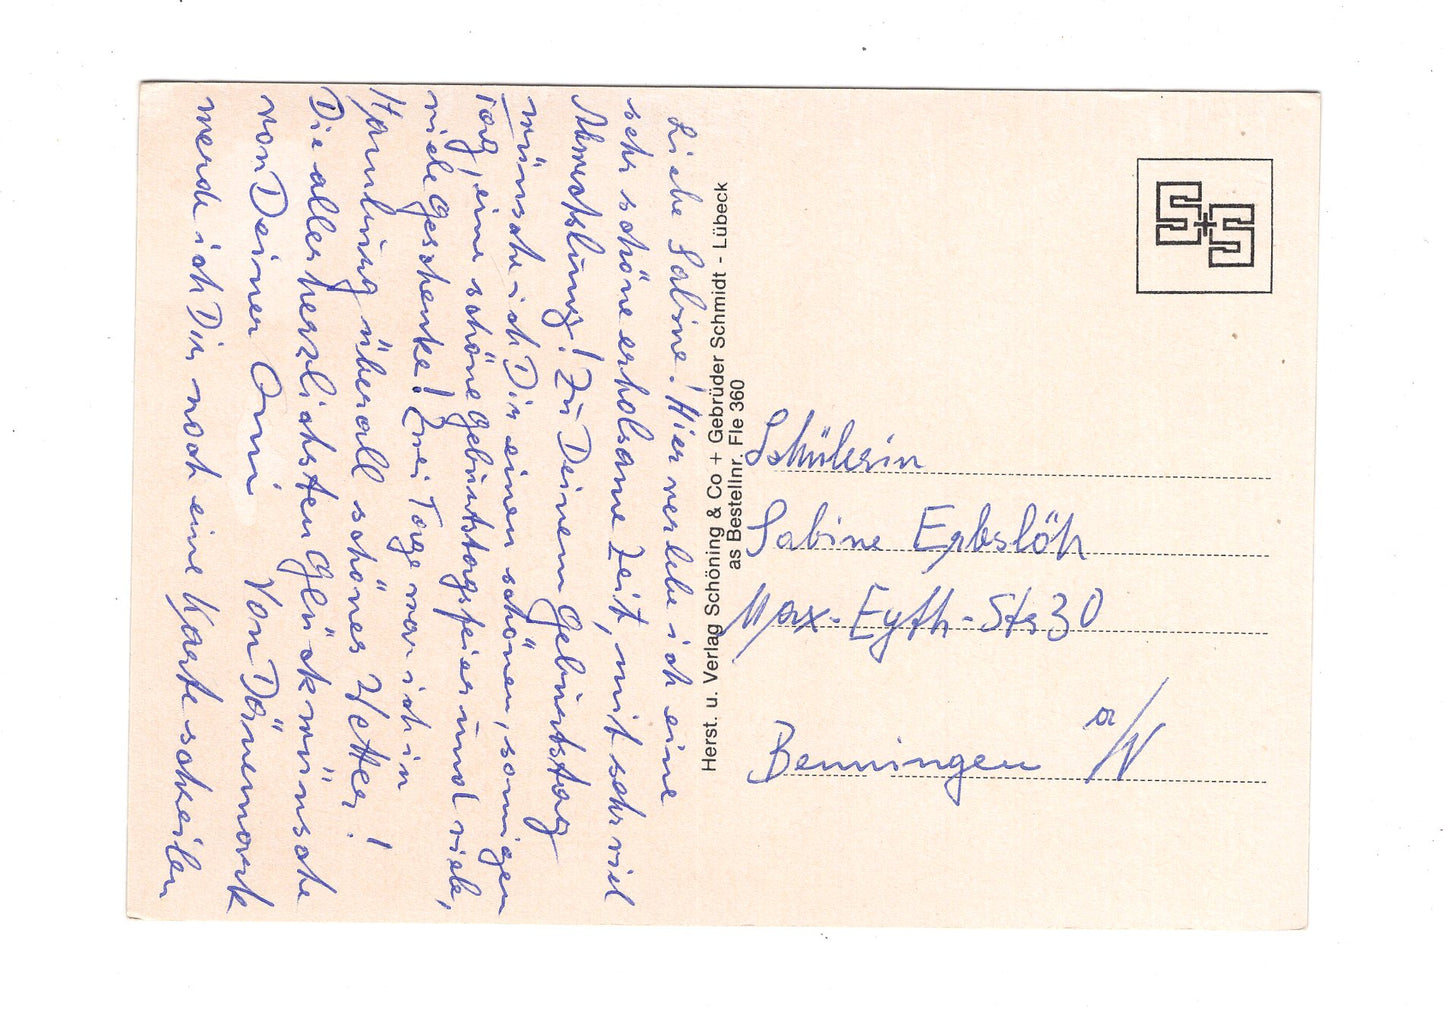 Liebe Sabine! Hier verlebe ich eine
sehr schöne erholsame Zeit, mit sehr viel
Abwechslung! Zu Deinem Geburtstag
wünsche ich Dir einen schönen, sonnigen
Tag, eine schöne Geburtstagsfeier und viele,
viele Geschenke! Zwei Tage war ich in
Hamburg überall schönes Wetter!
Die allerherzlichsten Glückwünsche
von Deiner Omi Von Dänemark
werde ich Dir noch eine Karte schreiben
Herst. u. Verlag Schöning & Co + Gebrüder Schmidt - Lübeck
as Bestellnr. Fle 360
S+S
Schülerin
Sabine Erbslöh
Max-Eyth-Str 30
Benningen a/N